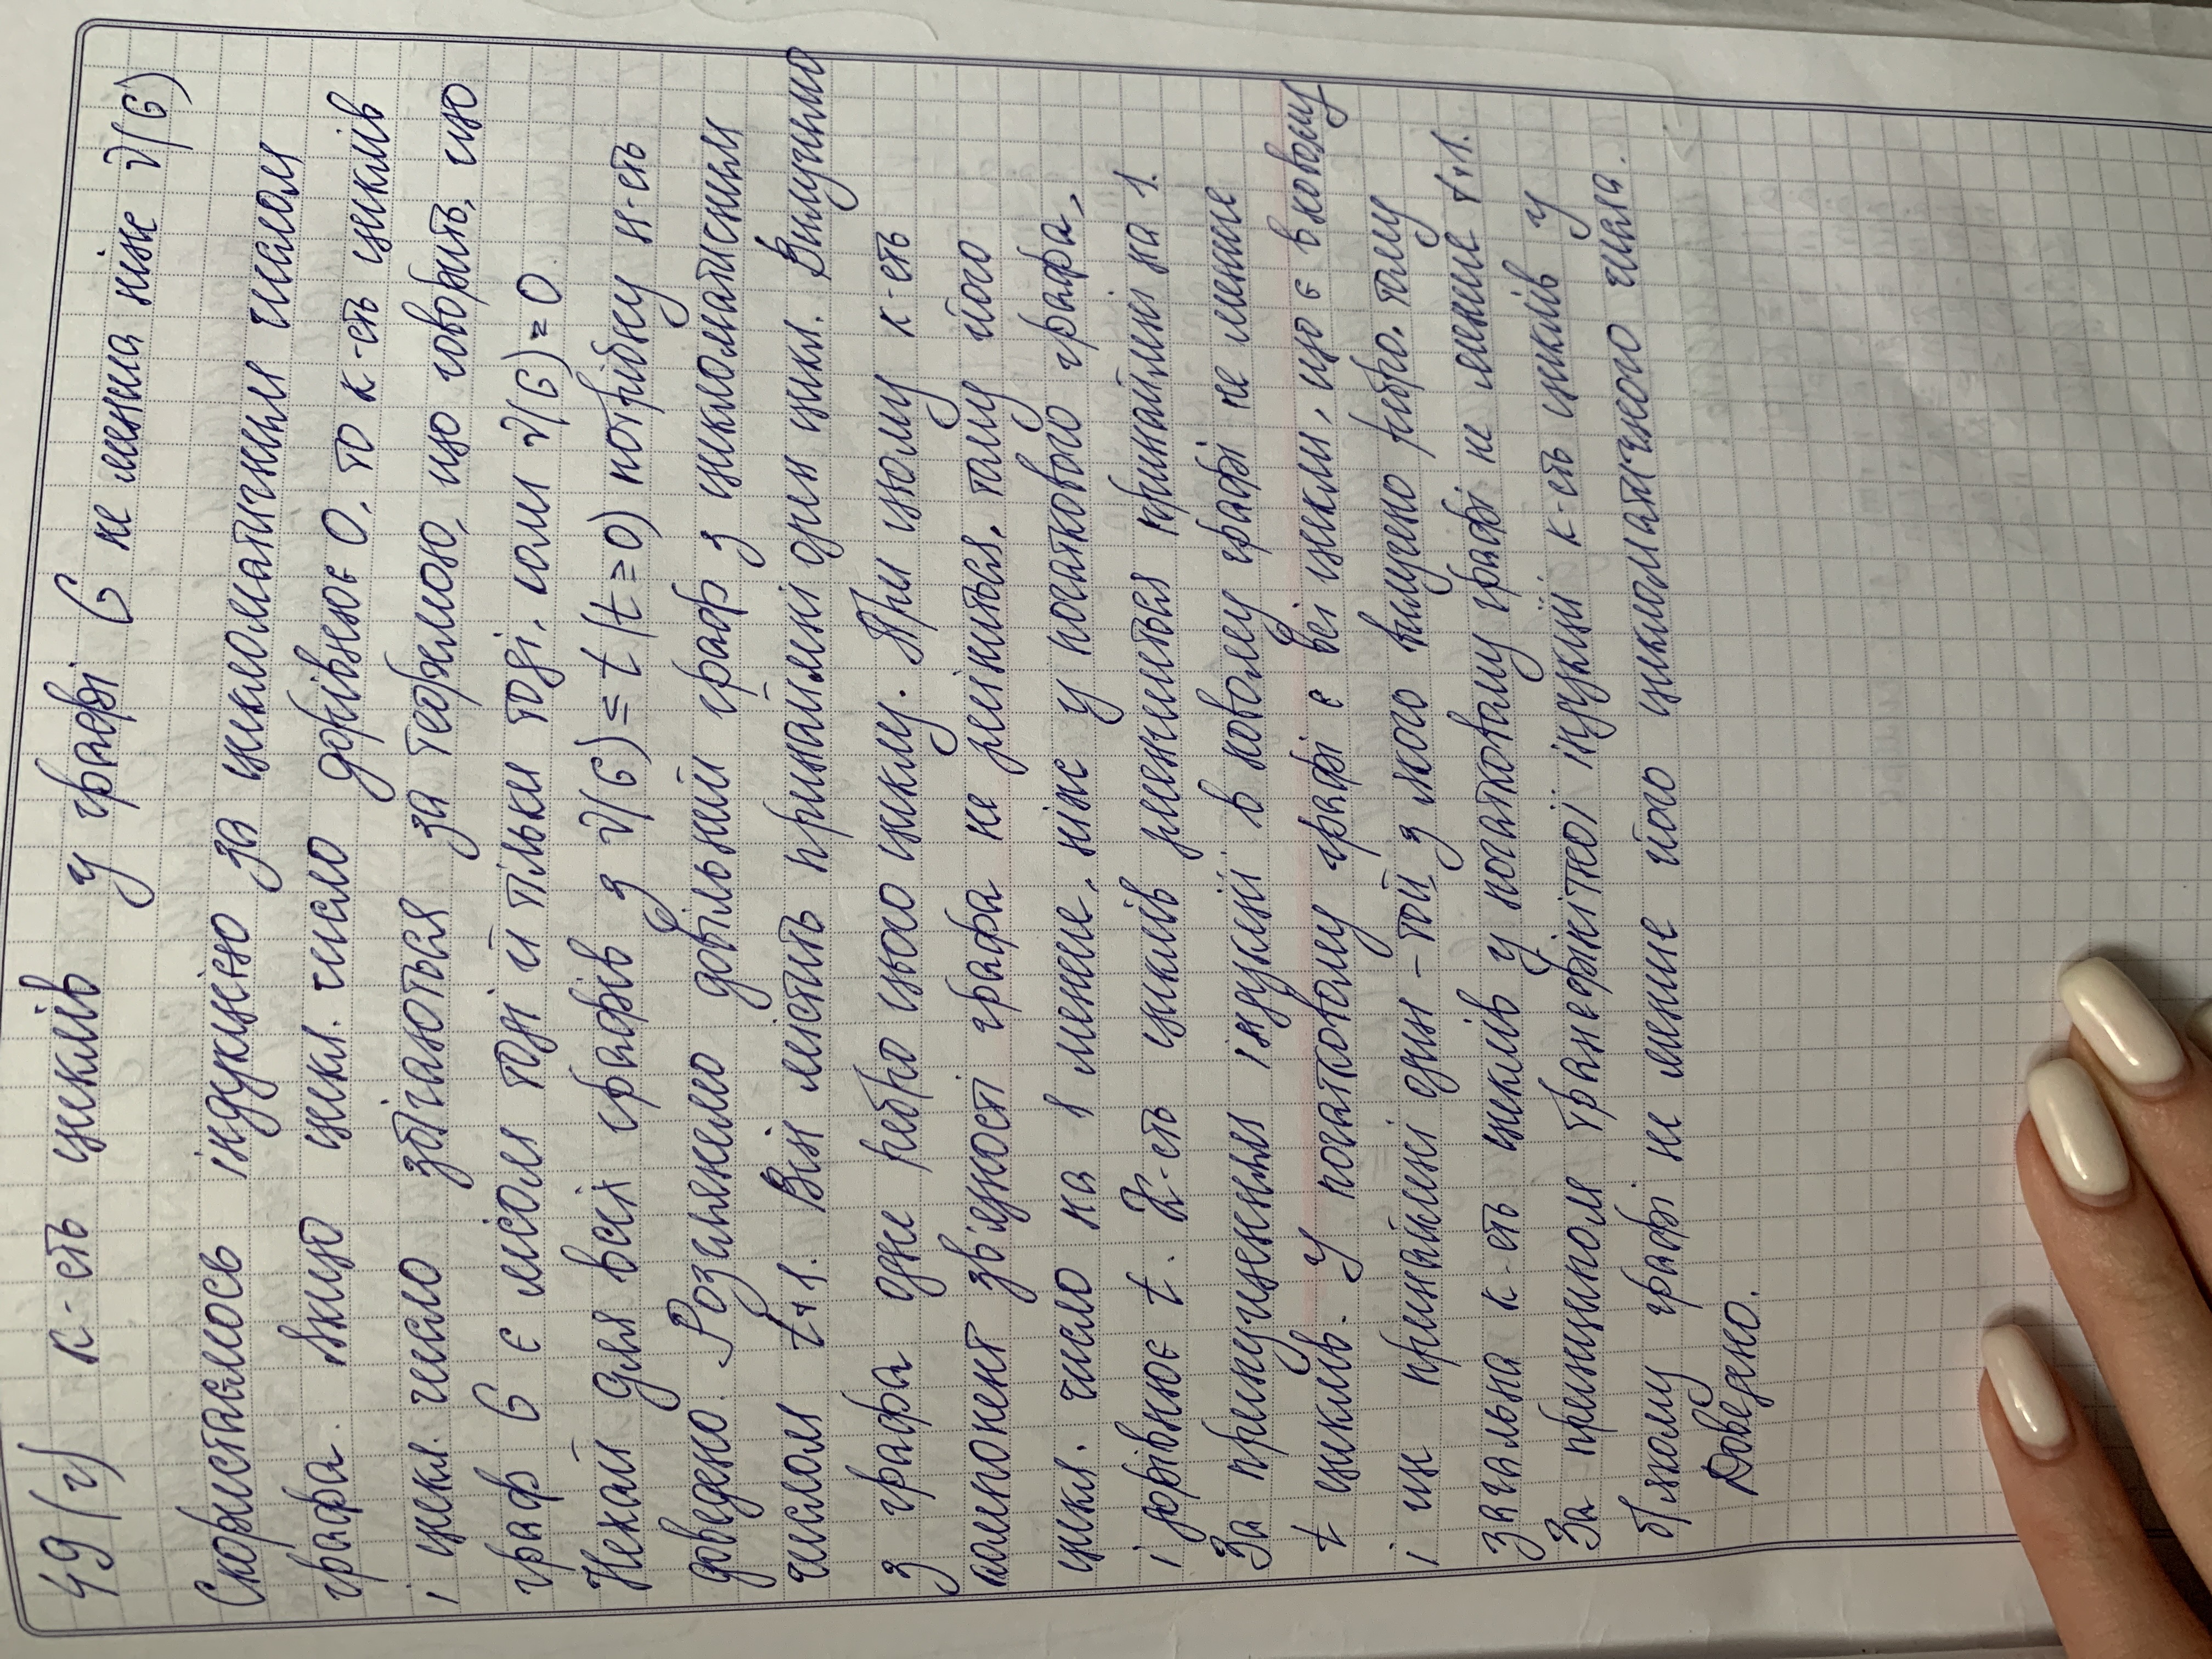 49(г) к-сть циклів у графі G не менша ніж ν(G)
Скористаємось індукцією за цикломатичним числом
графа. Якщо цикл. число дорівнює 0, то к-сть циклів
і цикл. число збігаються за теоремою, що говорить, що
граф G є лісом тоді й тільки тоді, коли ν(G)=0.
Нехай для всіх графів з ν(G)≤t (t≥0) потрібну н-сть
доведено. Розглянемо довільний граф з цикломатисним
числом t+1. Він містить принаймні один цикл. Вилучимо
з графа одне ребро цього циклу. При цьому к-сть
компонент зв'язності графа не зміниться, тому його
цикл. число на 1 менше, ніж у початкового графа,
і дорівнює t. К-сть циклів зменшиться принаймні на 1.
За припущенням індукції в новому графі не менше
t циклів. У початковому графі є всі цикли, що є в новому
і ще принаймні один - той, з якого вилучено ребро. тому
загальна к-сть циклів у початковому графі не менше t+1.
За принципом трансфінітної індукції к-сть циклів у
б/якому графі не менше його цикломатичного числа.
Доведено.